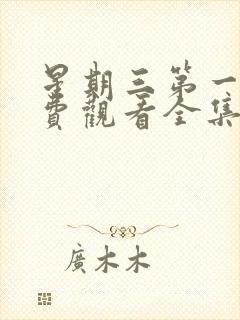 星期三第一
費觀看全集
廣木木